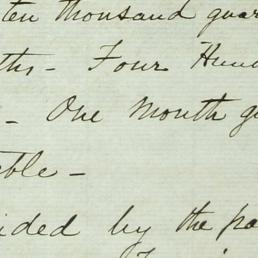 ten thousand quar
ths - Four Hund
- One Month g
ble -
ided by the pa